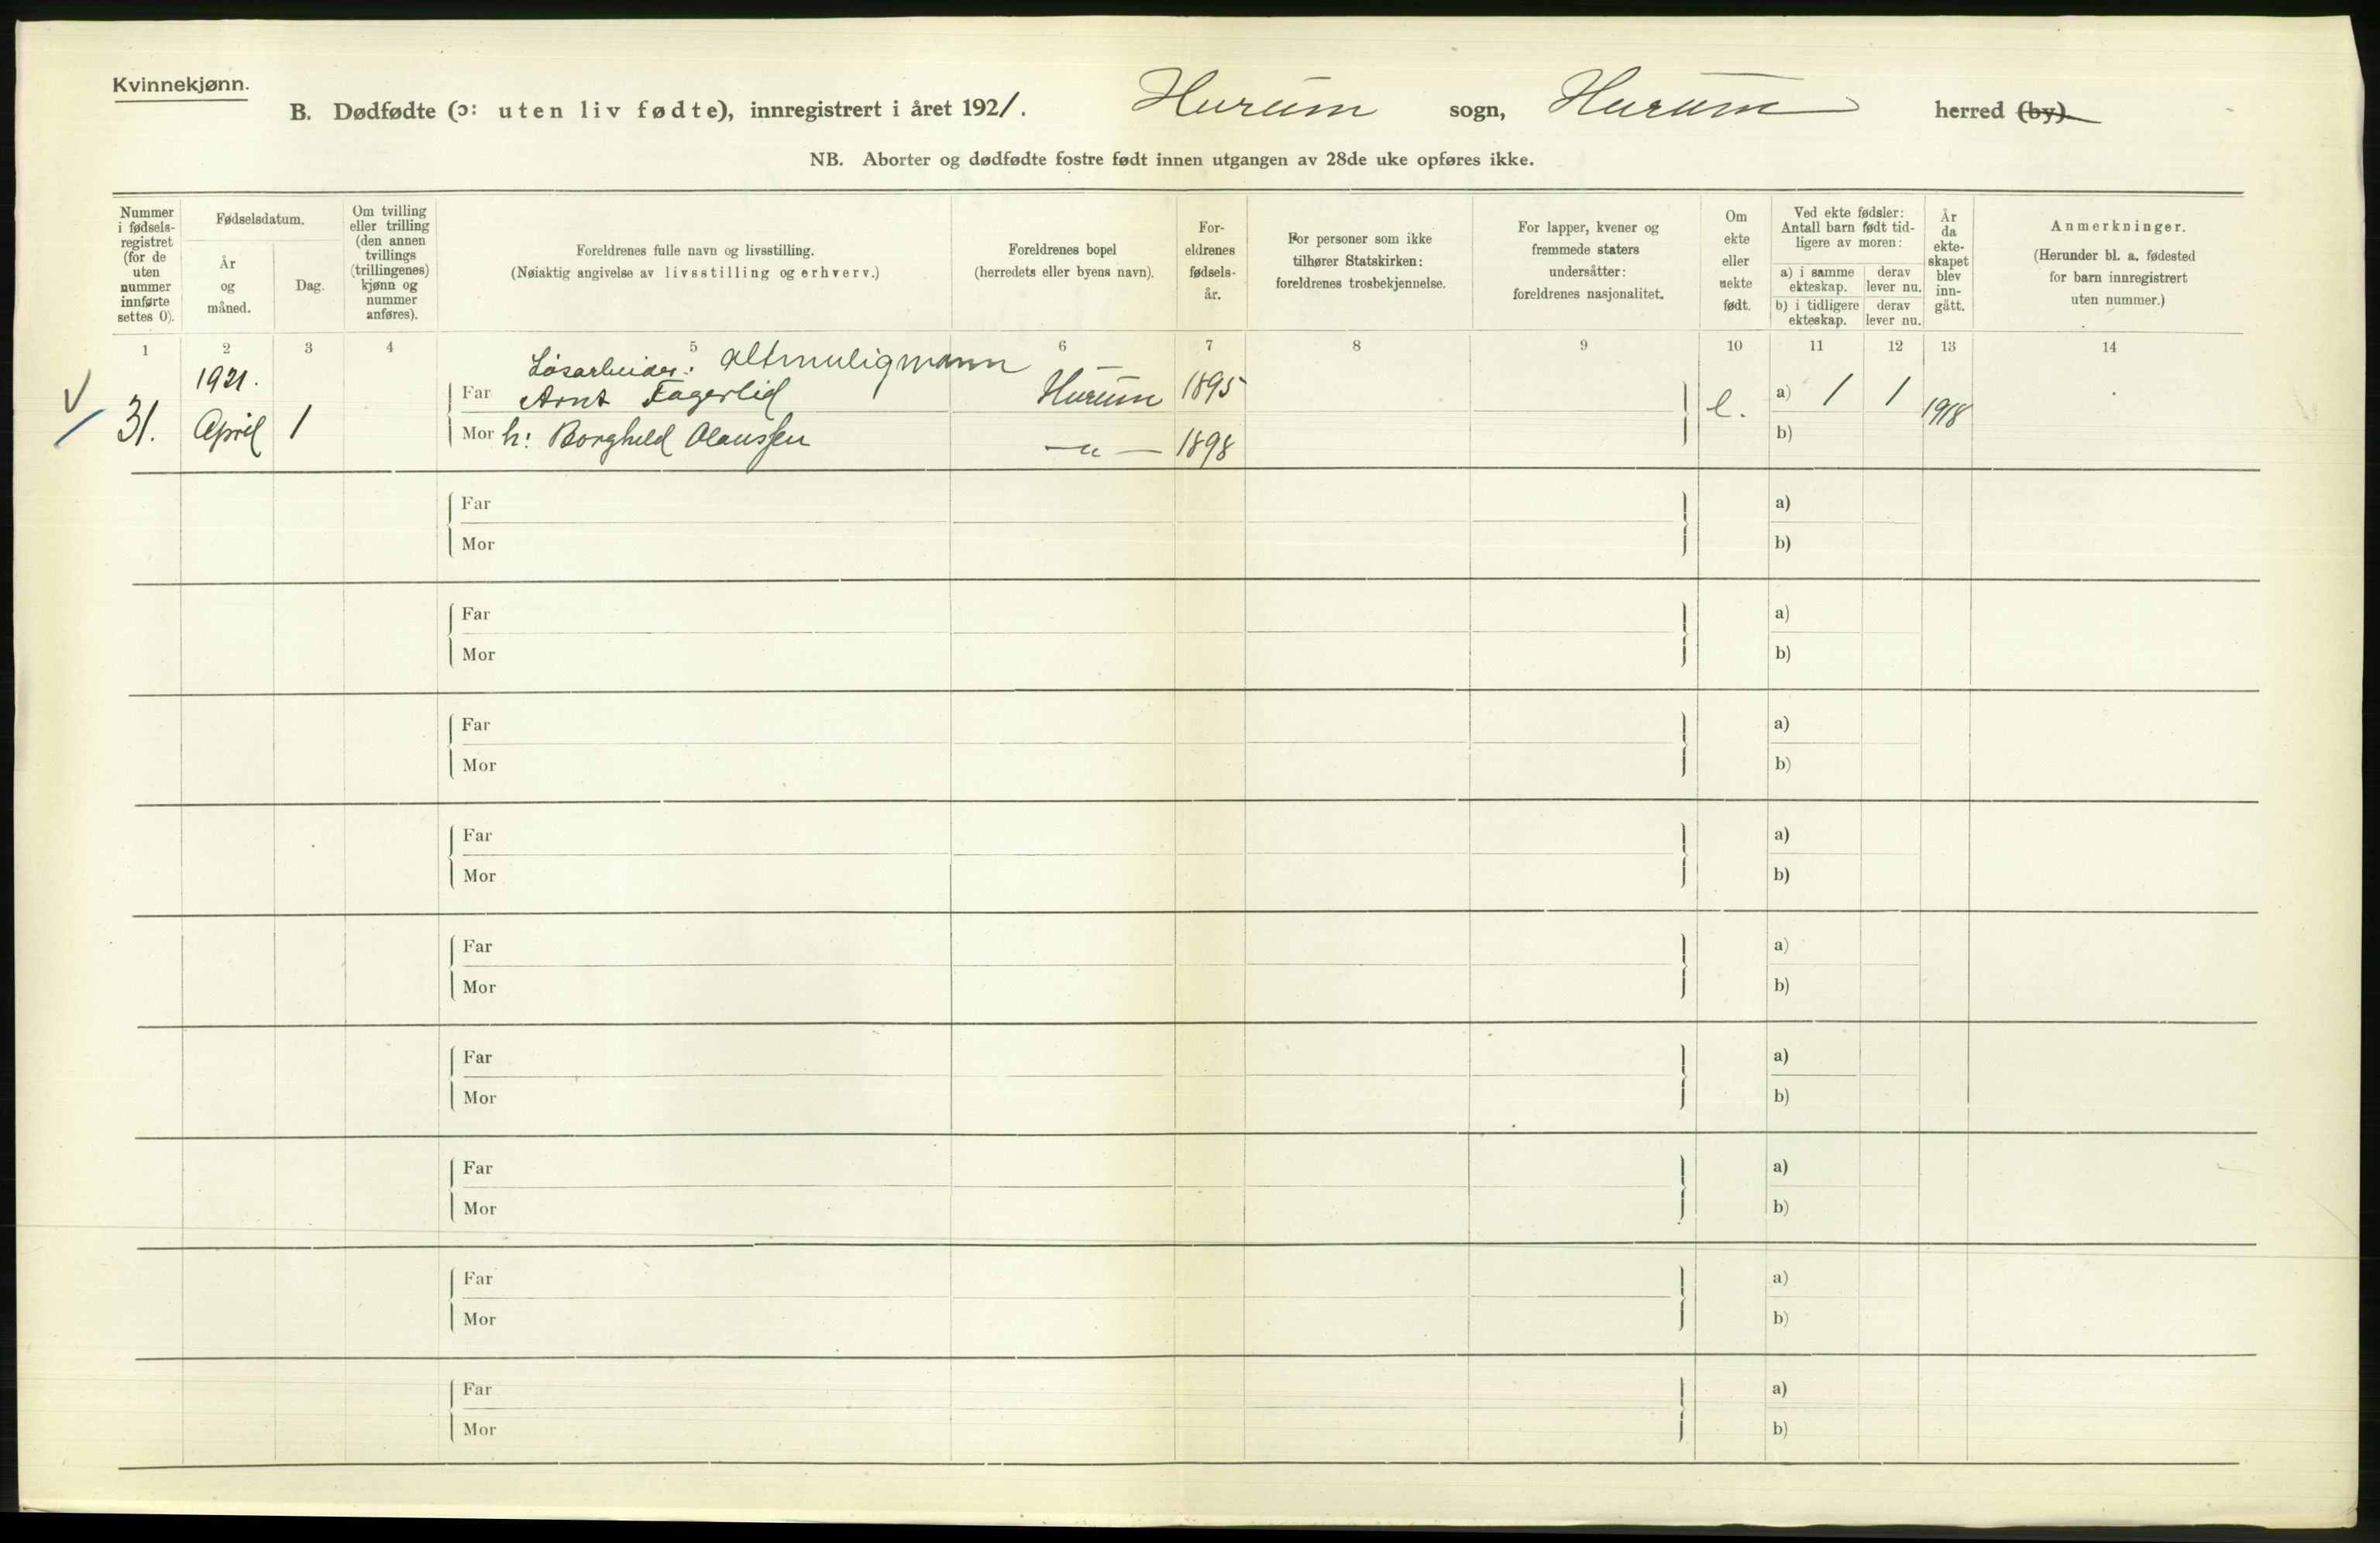 Kvinnekjønn.
B. Dødfødte (ɔ: uten liv fødte), innregistrert i året 1921. Hurum sogn, Hurum herred (by).
NB. Aborter og dødfødte fostre født innen utgangen av 28de uke opføres ikke.
Nummer i fødsels-registret (for de uten nummer innførte settes 0).
Fødselsdatum.
År og måned.
Dag.
Om tvilling eller trilling (den annen tvillings (trillingenes) kjønn og nummer anføres).
Foreldrenes fulle navn og livsstilling.
(Nøiaktig angivelse av livsstilling og erhverv.)
Foreldrenes bopel
(herredets eller byens navn).
For-eldrenes fødsels-år.
For personer som ikke tilhører Statskirken: foreldrenes trosbekjennelse.
For lapper, kvener og fremmede staters undersåtter: foreldrenes nasjonalitet.
Om ekte eller uekte født.
Ved ekte fødsler: Antall barn født tid-ligere av moren:
a) i samme ekteskap.
derav lever nu.
b) i tidligere ekteskap.
derav lever nu.
År da ekte-skapet blev inn-gått.
Anmerkninger.
(Herunder bl. a. fødested for barn innregistrert uten nummer.)
1 2 3 4 5 6 7 8 9 10 11 12 13 14
Løsarbeider: altmuligmann
1921.
Far Arnt Fagerlid Hurum 1895 e. a) 1 1 1918
31. April 1
Mor h: Borghild Olaussen —„— 1898 b)
Far a)
Mor b)
Far a)
Mor b)
Far a)
Mor b)
Far a)
Mor b)
Far a)
Mor b)
Far a)
Mor b)
Far a)
Mor b)
Far a)
Mor b)
Far a)
Mor b)